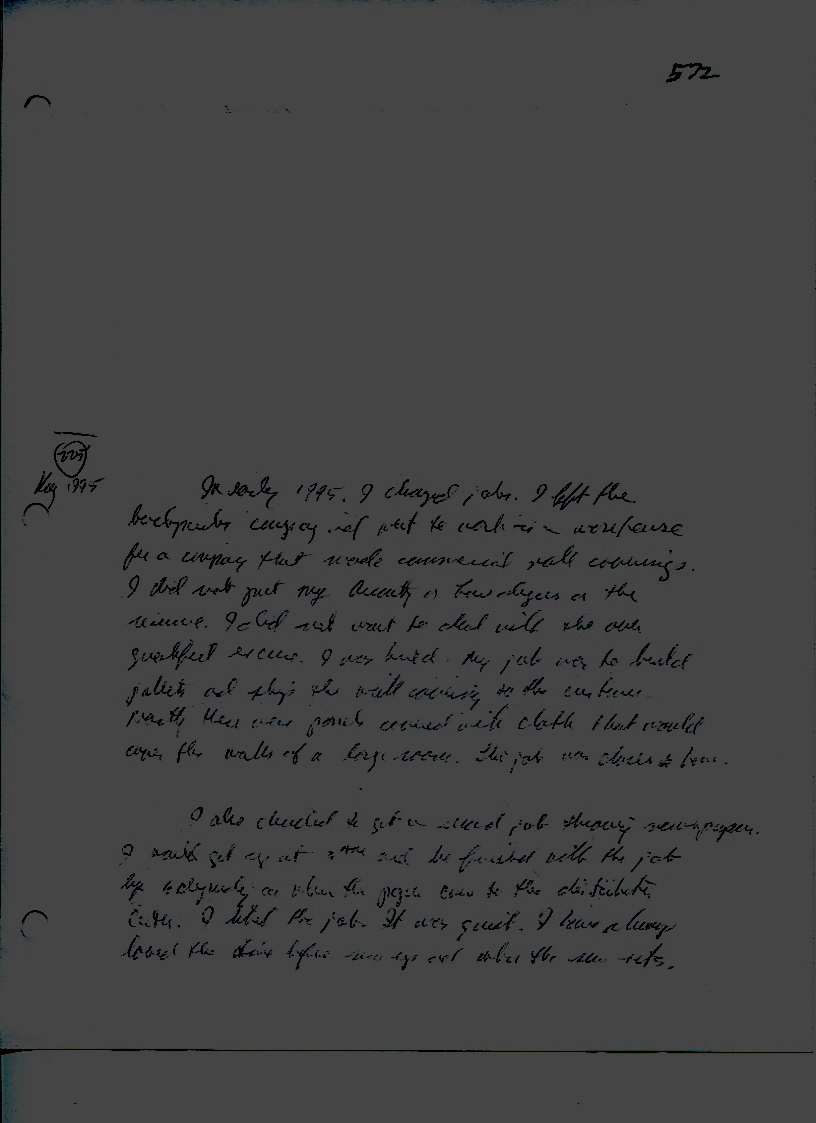 572
225
May 1995
In early 1995, I changed jobs. I left the
company and went to work in a warehouse
for a company that made commercial wall coverings.
I did not put my or law degree on the
resume. I did not want to deal with the over
qualified excuse. I was hired. My job was to build
pallets and ship the wall covering to the customer.
Mostly these were panels covered with cloth that would
cover the walls of a large room. This job was closer to home.
I also decided to get a second job throwing newspapers.
I would get up at 3 AM and be finished with the job
by 6 depending on when the paper came to the distribution
center. I liked the job. It was quiet. I have always
loved the time before sun up and when the sun sets.